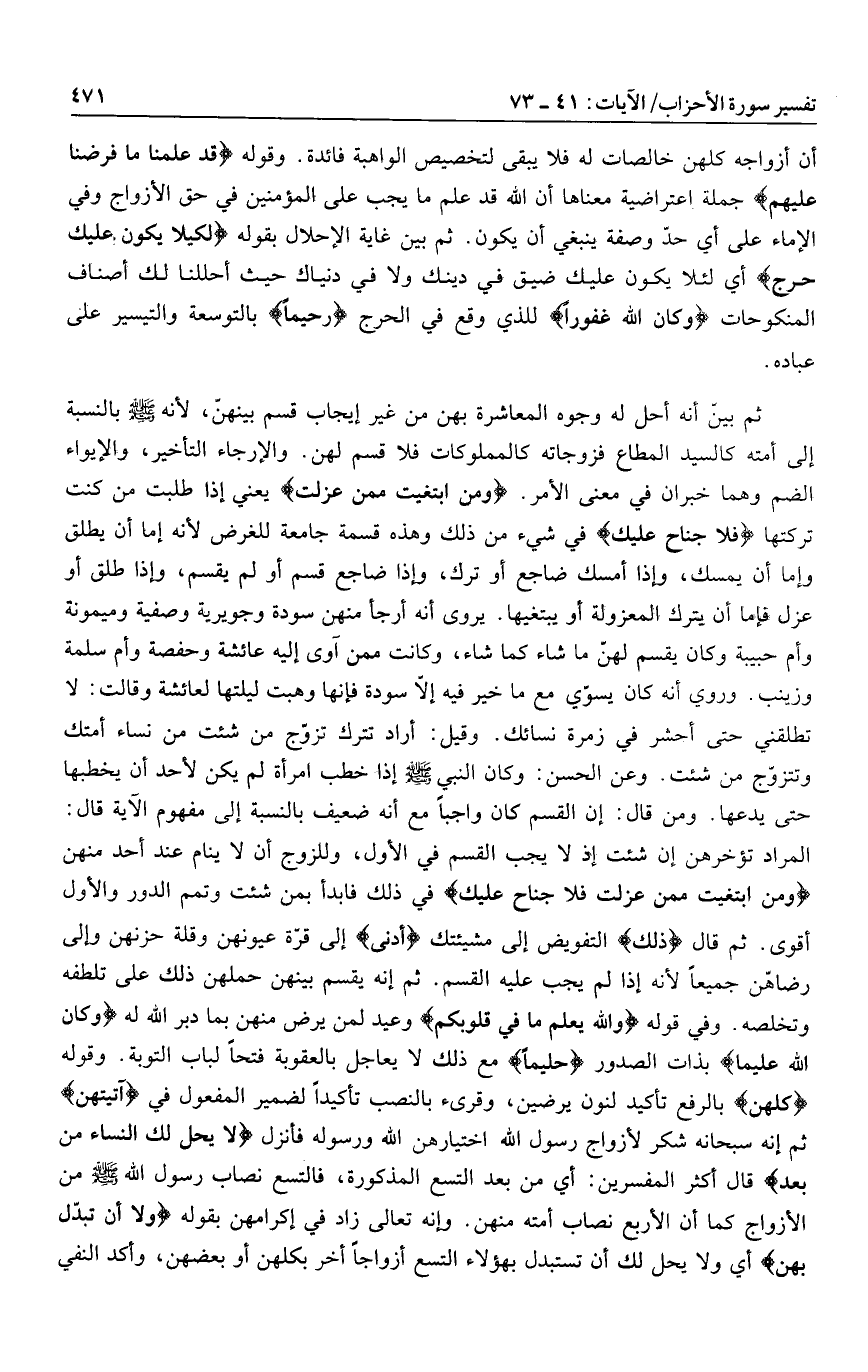 تفسير سورة الأحزاب/ الآيات: ٤١ ـ ٧٣
٤٧١
أن أزواجه كلهن خالصات له فلا يبقى لتخصيص الواهبة فائدة. وقوله ﴿قد علمنا ما فرضنا
عليهم﴾ جملة اعتراضية معناها أن الله قد علم ما يجب على المؤمنين في حق الأزواج وفي
الإماء على أي حدّ وصفة ينبغي أن يكون. ثم بين غاية الإحلال بقوله ﴿لكيلا يكون عليك
حرج﴾ أي لئلا يكون عليك ضيق في دينك ولا في دنياك حيث أحللنا لك أصناف
المنكوحات ﴿وكان الله غفوراً﴾ للذي وقع في الحرج ﴿رحيماً﴾ بالتوسعة والتيسير على
عباده.
ثم بينّ أنه أحل له وجوه المعاشرة بهن من غير إيجاب قسم بينهنّ، لأنه ﷺ بالنسبة
إلى أمته كالسيد المطاع فزوجاته كالمملوكات فلا قسم لهن. والإرجاء التأخير، والإيواء
الضم وهما خبران في معنى الأمر. ﴿ومن ابتغيت ممن عزلت﴾ يعني إذا طلبت من كنت
تركتها ﴿فلا جناح عليك﴾ في شيء من ذلك وهذه قسمة جامعة للغرض لأنه إما أن يطلق
وإما أن يمسك، وإذا أمسك ضاجع أو ترك، وإذا ضاجع قسم أو لم يقسم، وإذا طلق أو
عزل فإما أن يترك المعزولة أو يبتغيها. يروى أنه أرجأ منهن سودة وجويرية وصفية وميمونة
وأم حبيبة وكان يقسم لهنّ ما شاء كما شاء، وكانت ممن آوى إليه عائشة وحفصة وأم سلمة
وزينب. وروي أنه كان يسوّي مع ما خير فيه إلاّ سودة فإنها وهبت ليلتها لعائشة وقالت: لا
تطلقني حتى أحشر في زمرة نسائك. وقيل: أراد تترك تزوّج من شئت من نساء أمتك
وتتزوّج من شئت. وعن الحسن: وكان النبي ﷺ إذا خطب امرأة لم يكن لأحد أن يخطبها
حتى يدعها. ومن قال: إن القسم كان واجباً مع أنه ضعيف بالنسبة إلى مفهوم الآية قال:
المراد تؤخرهن إن شئت إذ لا يجب القسم في الأول، وللزوج أن لا ينام عند أحد منهن
﴿ومن ابتغيت ممن عزلت فلا جناح عليك﴾ في ذلك فابدأ بمن شئت وتمم الدور والأول
أقوى. ثم قال ﴿ذلك﴾ التفويض إلى مشيئتك ﴿أدنى﴾ إلى قرّة عيونهن وقلة حزنهن وإلى
رضاهّن جميعاً لأنه إذا لم يجب عليه القسم. ثم إنه يقسم بينهن حملهن ذلك على تلطفه
وتخلصه. وفي قوله ﴿والله يعلم ما في قلوبكم﴾ وعيد لمن يرض منهن بما دبر الله له ﴿وكان
الله عليما﴾ بذات الصدور ﴿حليماً﴾ مع ذلك لا يعاجل بالعقوبة فتحاً لباب التوبة. وقوله
﴿كلهن﴾ بالرفع تأكيد لنون يرضين، وقرىء بالنصب تأكيداً لضمير المفعول في ﴿آتيتهن﴾
ثم إنه سبحانه شكر لأزواج رسول الله اختيارهن الله ورسوله فأنزل ﴿لا يحل لك النساء من
بعد﴾ قال أكثر المفسرين: أي من بعد التسع المذكورة، فالتسع نصاب رسول الله ﷺ من
الأزواج كما أن الأربع نصاب أمته منهن. وإنه تعالى زاد في إكرامهن بقوله ﴿ولا أن تبدّل
بهن﴾ أي ولا يحل لك أن تستبدل بهؤلاء التسع أزواجاً أخر بكلهن أو بعضهن، وأكد النفي